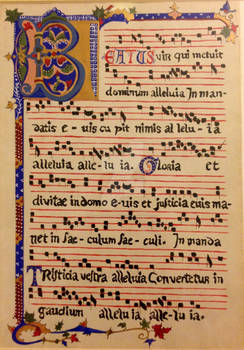 BEATUS vir qui metuit
dominum alleluia In man-
datis e-uis cu pit nimis al lelu-ia
alleluia alle-lu ia. Gloria et
divitae in domo e-uis et justicia euis ma-
net in sae-culum sae-culi. In manda
Tristicia vestra alleluia Convertetur in
gaudium alleluia, alle-lu ia.